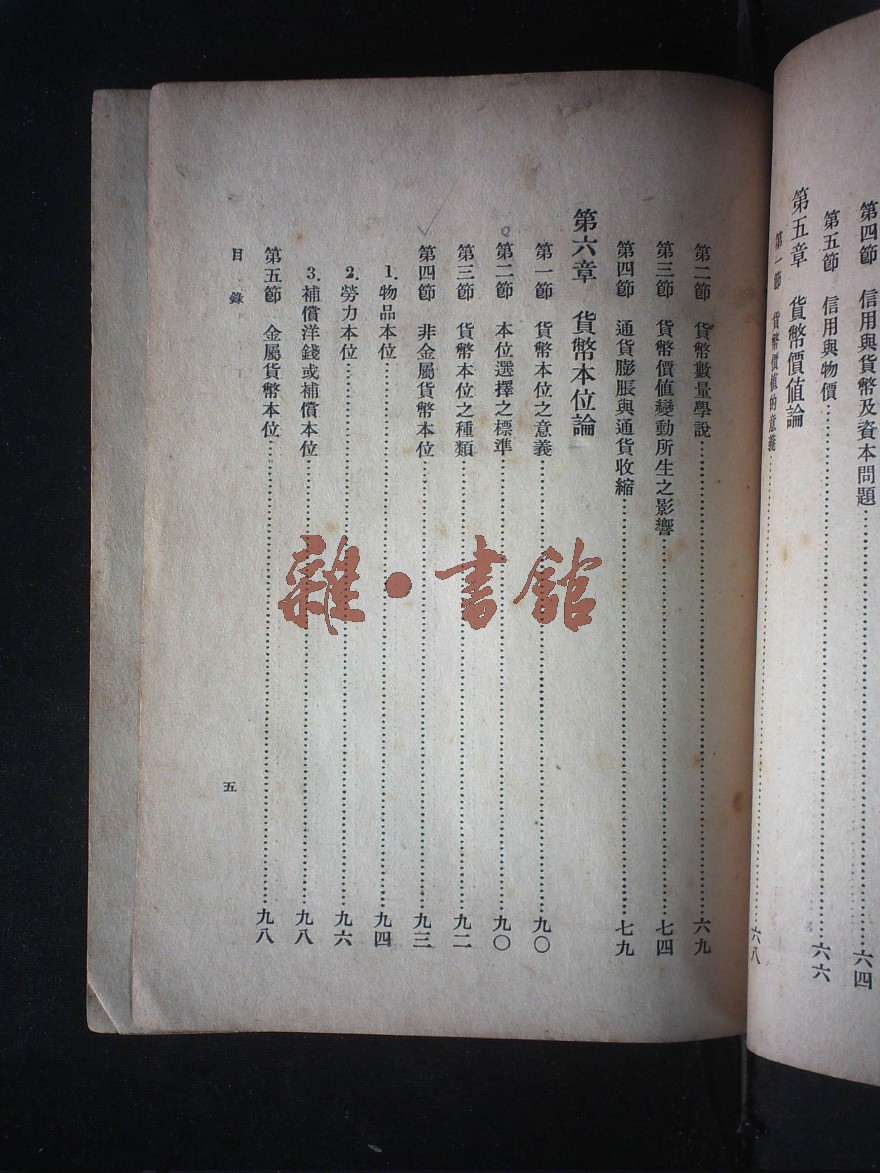 第四節 信用與貨幣及資本問題……六四
第五節 信用與物價……六六
第五章 貨幣價値論
第一節 貨幣價値的意義……六八
第二節 貨幣數量學說……六九
第三節 貨幣價値變動所生之影響……七四
第四節 通貨膨脹與通貨收縮……七九
第六章 貨幣本位論
第一節 貨幣本位之意義……九〇
第二節 本位選擇之標準……九〇
第三節 貨幣本位之種類……九二
第四節 非金屬貨幣本位……九三
1.物品本位……九四
2.勞力本位……九六
3.補償洋錢或補償本位……九八
第五節 金屬貨幣本位……九八
目錄
五
雜·書館